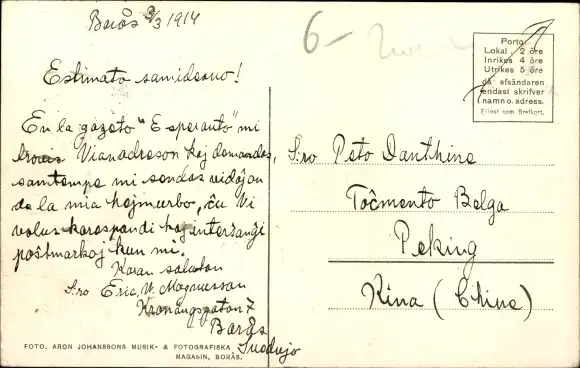 Borås 3/3 1914
6-
Estimata samideano!
En la gazeto "Esperanto" mi
trovis Vian adreson kaj demandas,
samtempe mi sendas vidaĵon
de la mia hejmurbo, ĉu Vi
volus korespondi kaj interŝanĝi
poŝtmarkoj kun mi.
Koran saluton
S:ro Eric. W. Magnusson
Kronängsgatan 7
Borås
Suedujo
S:ro Peto
Belga
Peking
Kina (Chine)
Porto:
Lokal 2 öre
Inrikes 4 öre
Utrikes 5 öre
då afsändaren
endast skrifver
namn o. adress.
Eljest som Brefkort.
FOTO. ARON JOHANSSONS MUSIK- & FOTOGRAFISKA
MAGASIN, BORÅS.